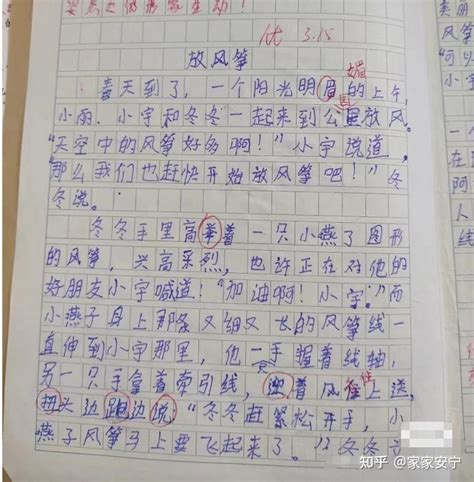 优 3.15
放风筝
春天到了,一个阳光明眉媚的上午,
小雨、小宇和冬冬一起来到公里园放风。
“天空中的风筝好多啊!”小宇说道,
“那么我们也赶快开始放风筝吧!”冬
冬说。
冬冬手里高举着一只小燕了图形
的风筝,兴高采烈,也许正在对他的
好朋友小宇喊道!“加油啊!小宇。”而
小燕子身上那条又细又长的风筝线一
直伸到小宇那里,他一手握着线轴,
另一只手拿着牵引线,迎着风往上送,
扭头边跑边说:“冬冬赶紧松开手,小
燕子风筝马上要飞起来了。”冬冬
知乎 @家家安宁